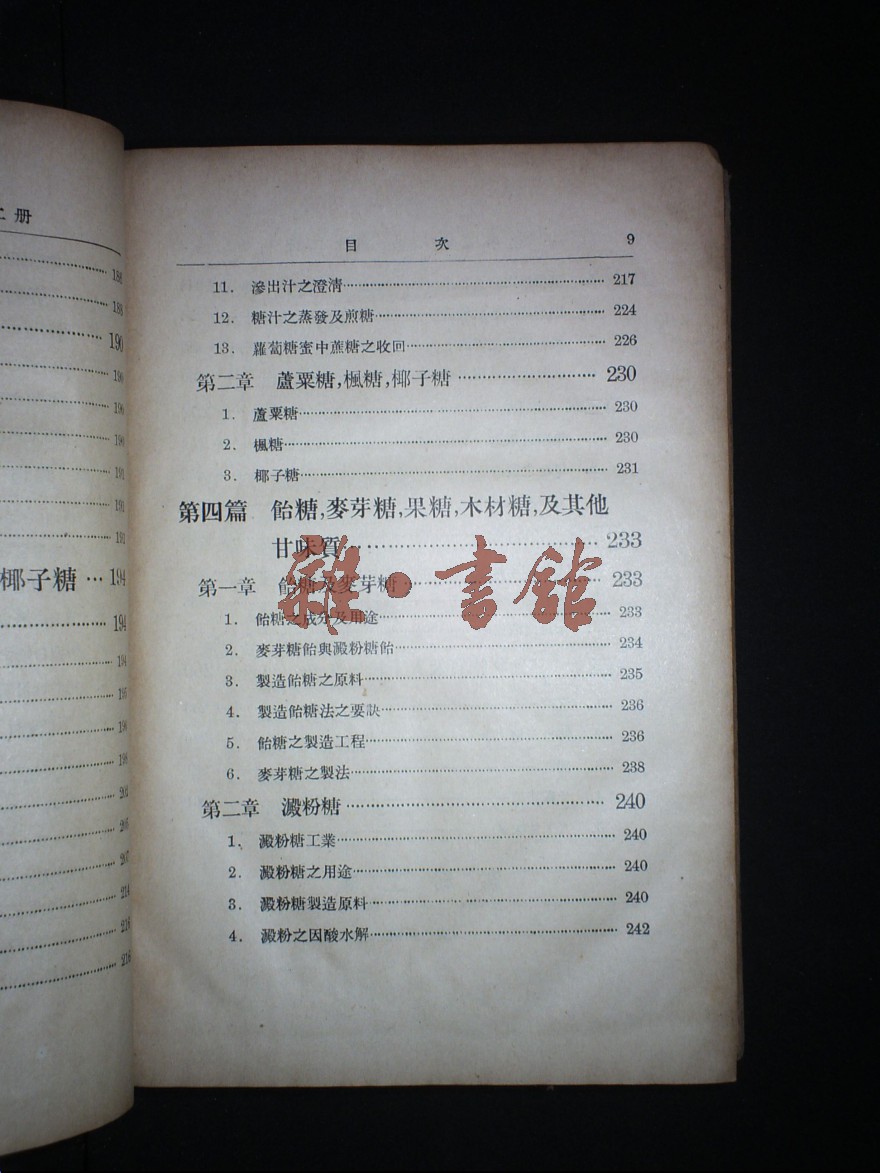 二册
188
188
190
190
190
190
191
191
191
椰子糖 … 194
194
194
195
198
198
202
205
207
214
216
216
目 次 9
11. 滲出汁之澄清 217
12. 糖汁之蒸發及煎糖 224
13. 蘿蔔糖蜜中蔗糖之收回 226
第二章 蘆粟糖,楓糖,椰子糖 230
1. 蘆粟糖 230
2. 楓糖 230
3. 椰子糖 231
第四篇 飴糖,麥芽糖,果糖,木材糖,及其他
甘味質 233
第一章 飴糖及麥芽糖 233
1. 飴糖之成分及用途 233
2. 麥芽糖飴與澱粉糖飴 234
3. 製造飴糖之原料 235
4. 製造飴糖法之要訣 236
5. 飴糖之製造工程 236
6. 麥芽糖之製法 238
第二章 澱粉糖 240
1. 澱粉糖工業 240
2. 澱粉糖之用途 240
3. 澱粉糖製造原料 240
4. 澱粉之因酸水解 242
雜·書館